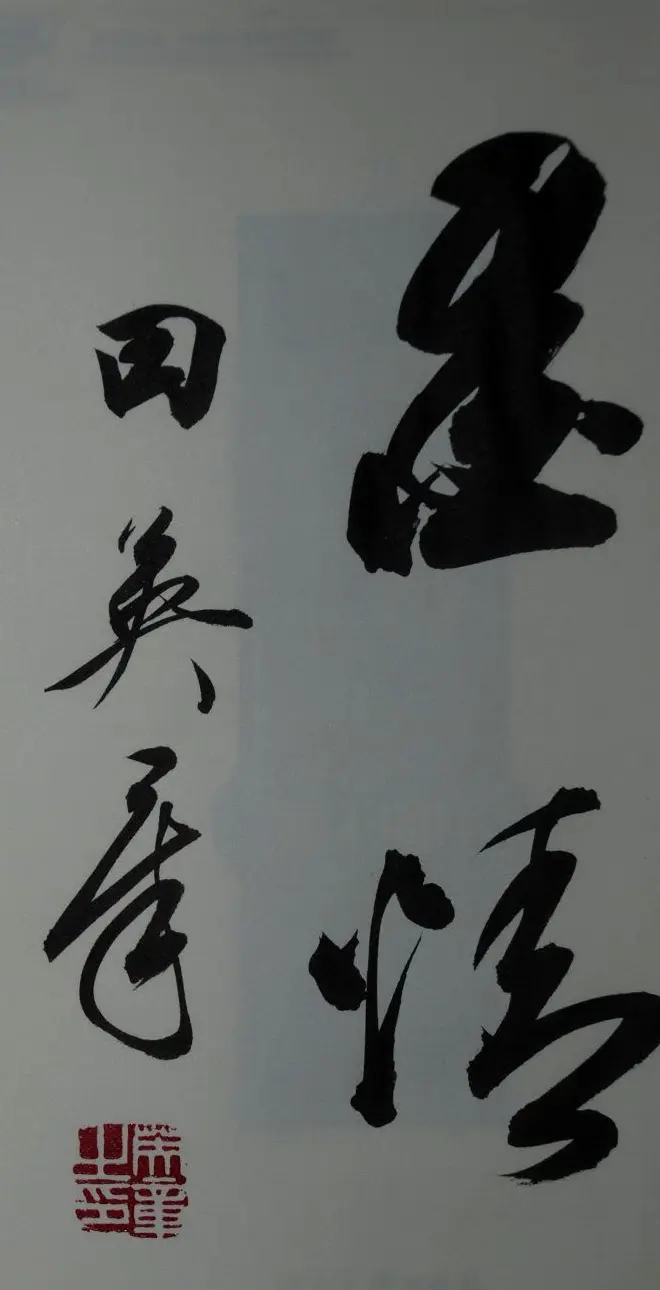 墨情
田英章